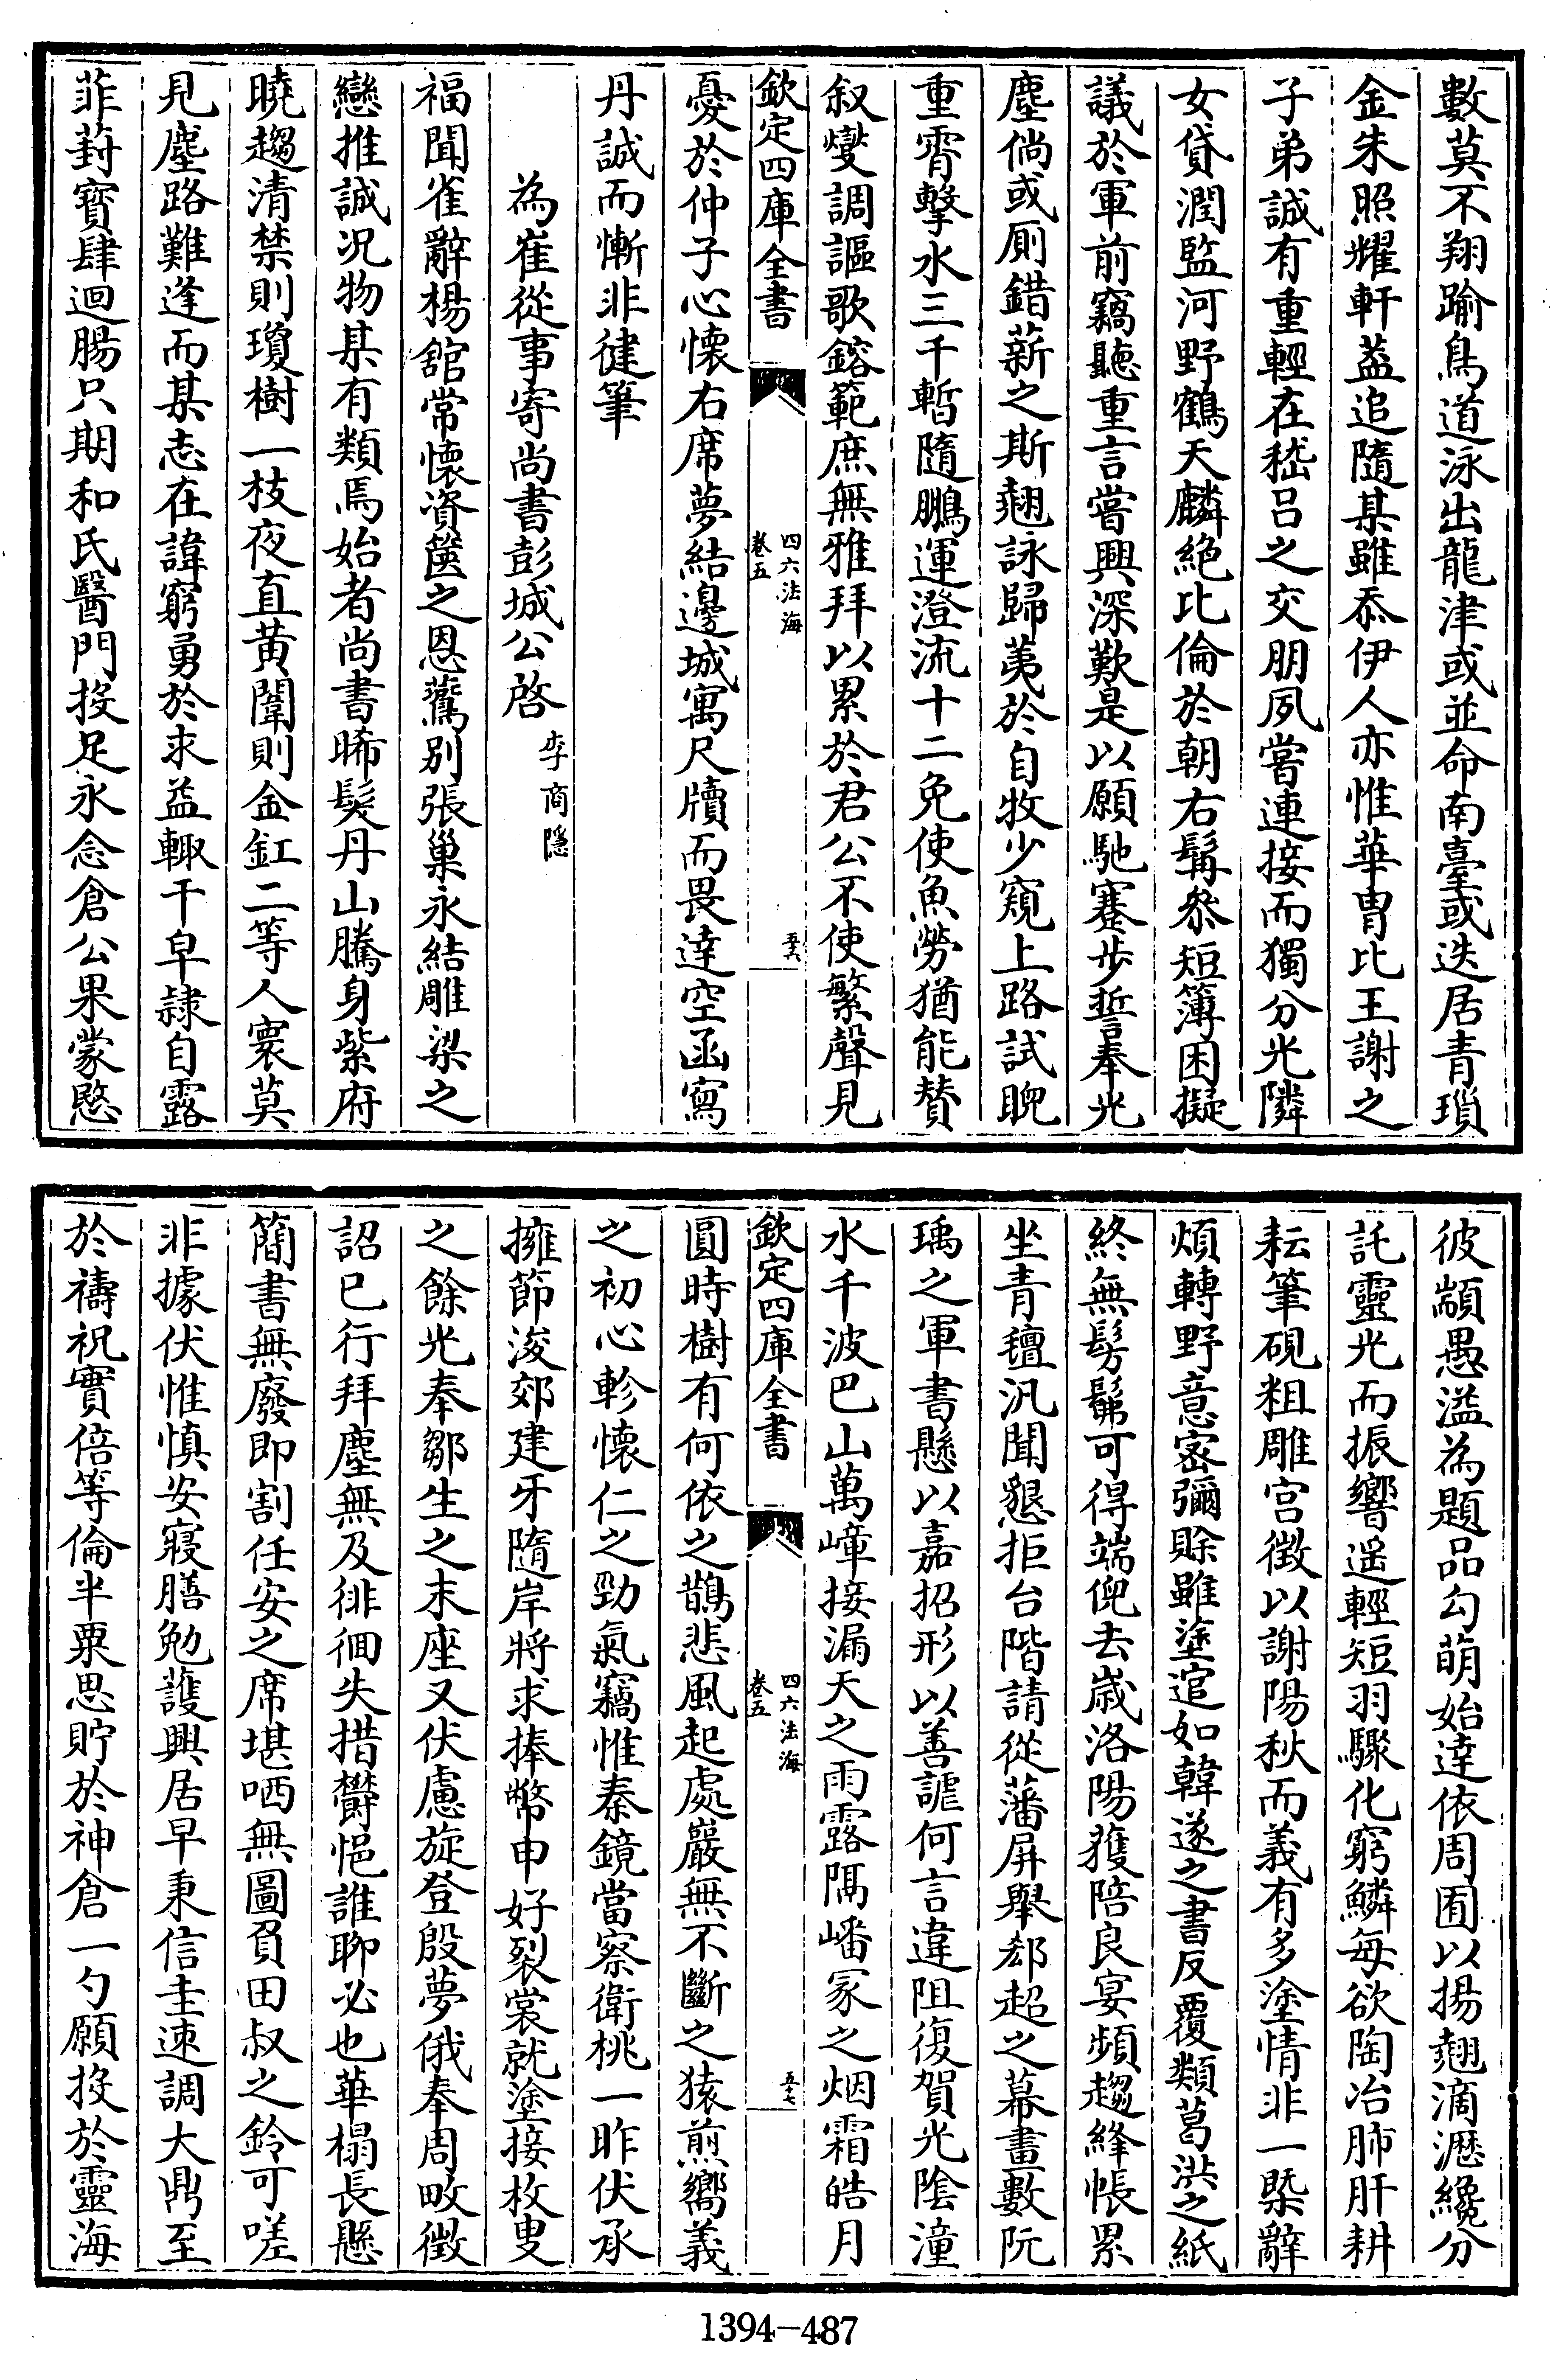 數莫不翔踰鳥道泳出龍津或並命南臺或迭居青瑣
金朱照耀軒葢追隨某雖忝伊人亦惟華胄比王謝之
子弟誠有重輕在嵇呂之交朋夙嘗連接而獨分光隣
女貸潤監河野鶴天麟絶比倫於朝右髯叅短簿困擬
議於軍前竊聽重言嘗興深歎是以願馳蹇步誓奉光
塵倘或厠錯薪之斯翹詠歸荑於自牧少窺上路試睨
重霄擊水三千暫隨鵬運澄流十二免使魚勞猶能贊
叙燮調謳歌鎔範庶無雅拜以累於君公不使繁聲見
欽定四庫全書
四六法海
卷五
五十六
憂於仲子心懐右席夢結邊城寓尺牘而畏達空函寫
丹誠而慚非健筆
為崔從事寄尚書彭城公啓
李商隱
福聞雀辭楊舘常懐資篋之恩鷰别張巢永結雕梁之
戀推誠况物某有類焉始者尚書晞髮丹山騰身紫府
曉趨清禁則瓊樹一枝夜直黄闈則金釭二等人寰莫
見塵路難逢而某志在諱窮勇於求益輙干皁隷自露
菲葑寳肆迴腸只期和氏醫門投足永念倉公果蒙愍
彼顓愚溢為題品勾萌始達依周囿以揚翹滴瀝纔分
託靈光而振響遥輕短羽驟化窮鱗每欲陶冶肺肝耕
耘筆硯粗雕宫徴以謝陽秋而義有多塗情非一槩辭
煩轉野意宻彌賖雖塗逭如韓遂之書反覆類葛洪之紙
終無髣髴可得端倪去歳洛陽獲陪良宴頻趨絳帳累
坐青氊汎聞懇拒台階請從藩屏舉郄超之幕畫數阮
瑀之軍書懸以嘉招形以善謔何言違阻復賀光隂潼
水千波巴山萬嶂接漏天之雨露隔嶓冢之烟霜皓月
欽定四庫全書
四六法海
卷五
五十七
圓時樹有何依之鵲悲風起處巖無不斷之猿煎嚮義
之初心軫懐仁之勁氣竊惟秦鏡當察衛桃一昨伏承
擁節浚郊建牙隋岸將求捧幣申好裂裳就塗接枚叟
之餘光奉鄒生之末座又伏慮旋登殷夢俄奉周畋徴
詔已行拜塵無及徘徊失措欝悒誰聊必也華榻長懸
簡書無廢即割任安之席堪哂無圖負田叔之鈴可嗟
非據伏惟慎安寢膳勉䕶興居早秉信圭速調大鼎至
於禱祝實倍等倫半粟思貯於神倉一勺願投於靈海
1394-487